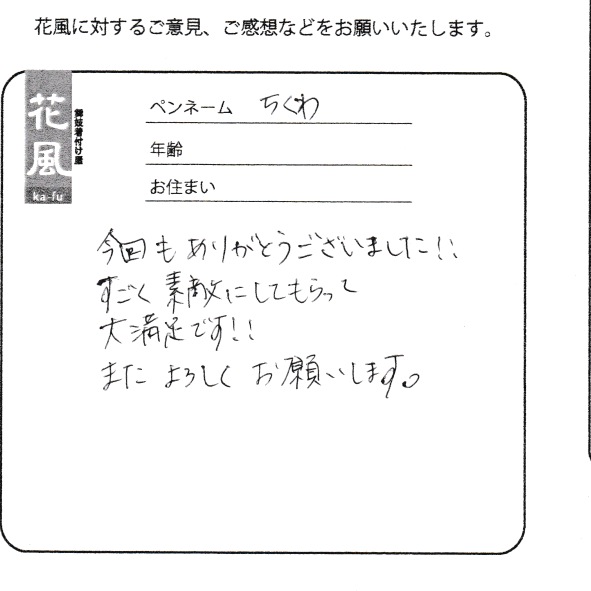 花風に対するご意見、ご感想などをお願いいたします。
花風
舞妓着付け屋
ka-fu
ペンネーム ちくわ
年齢
お住まい
今回もありがとうございました!!
すごく素敵にしてもらって
大満足です!!
またよろしくお願いします。